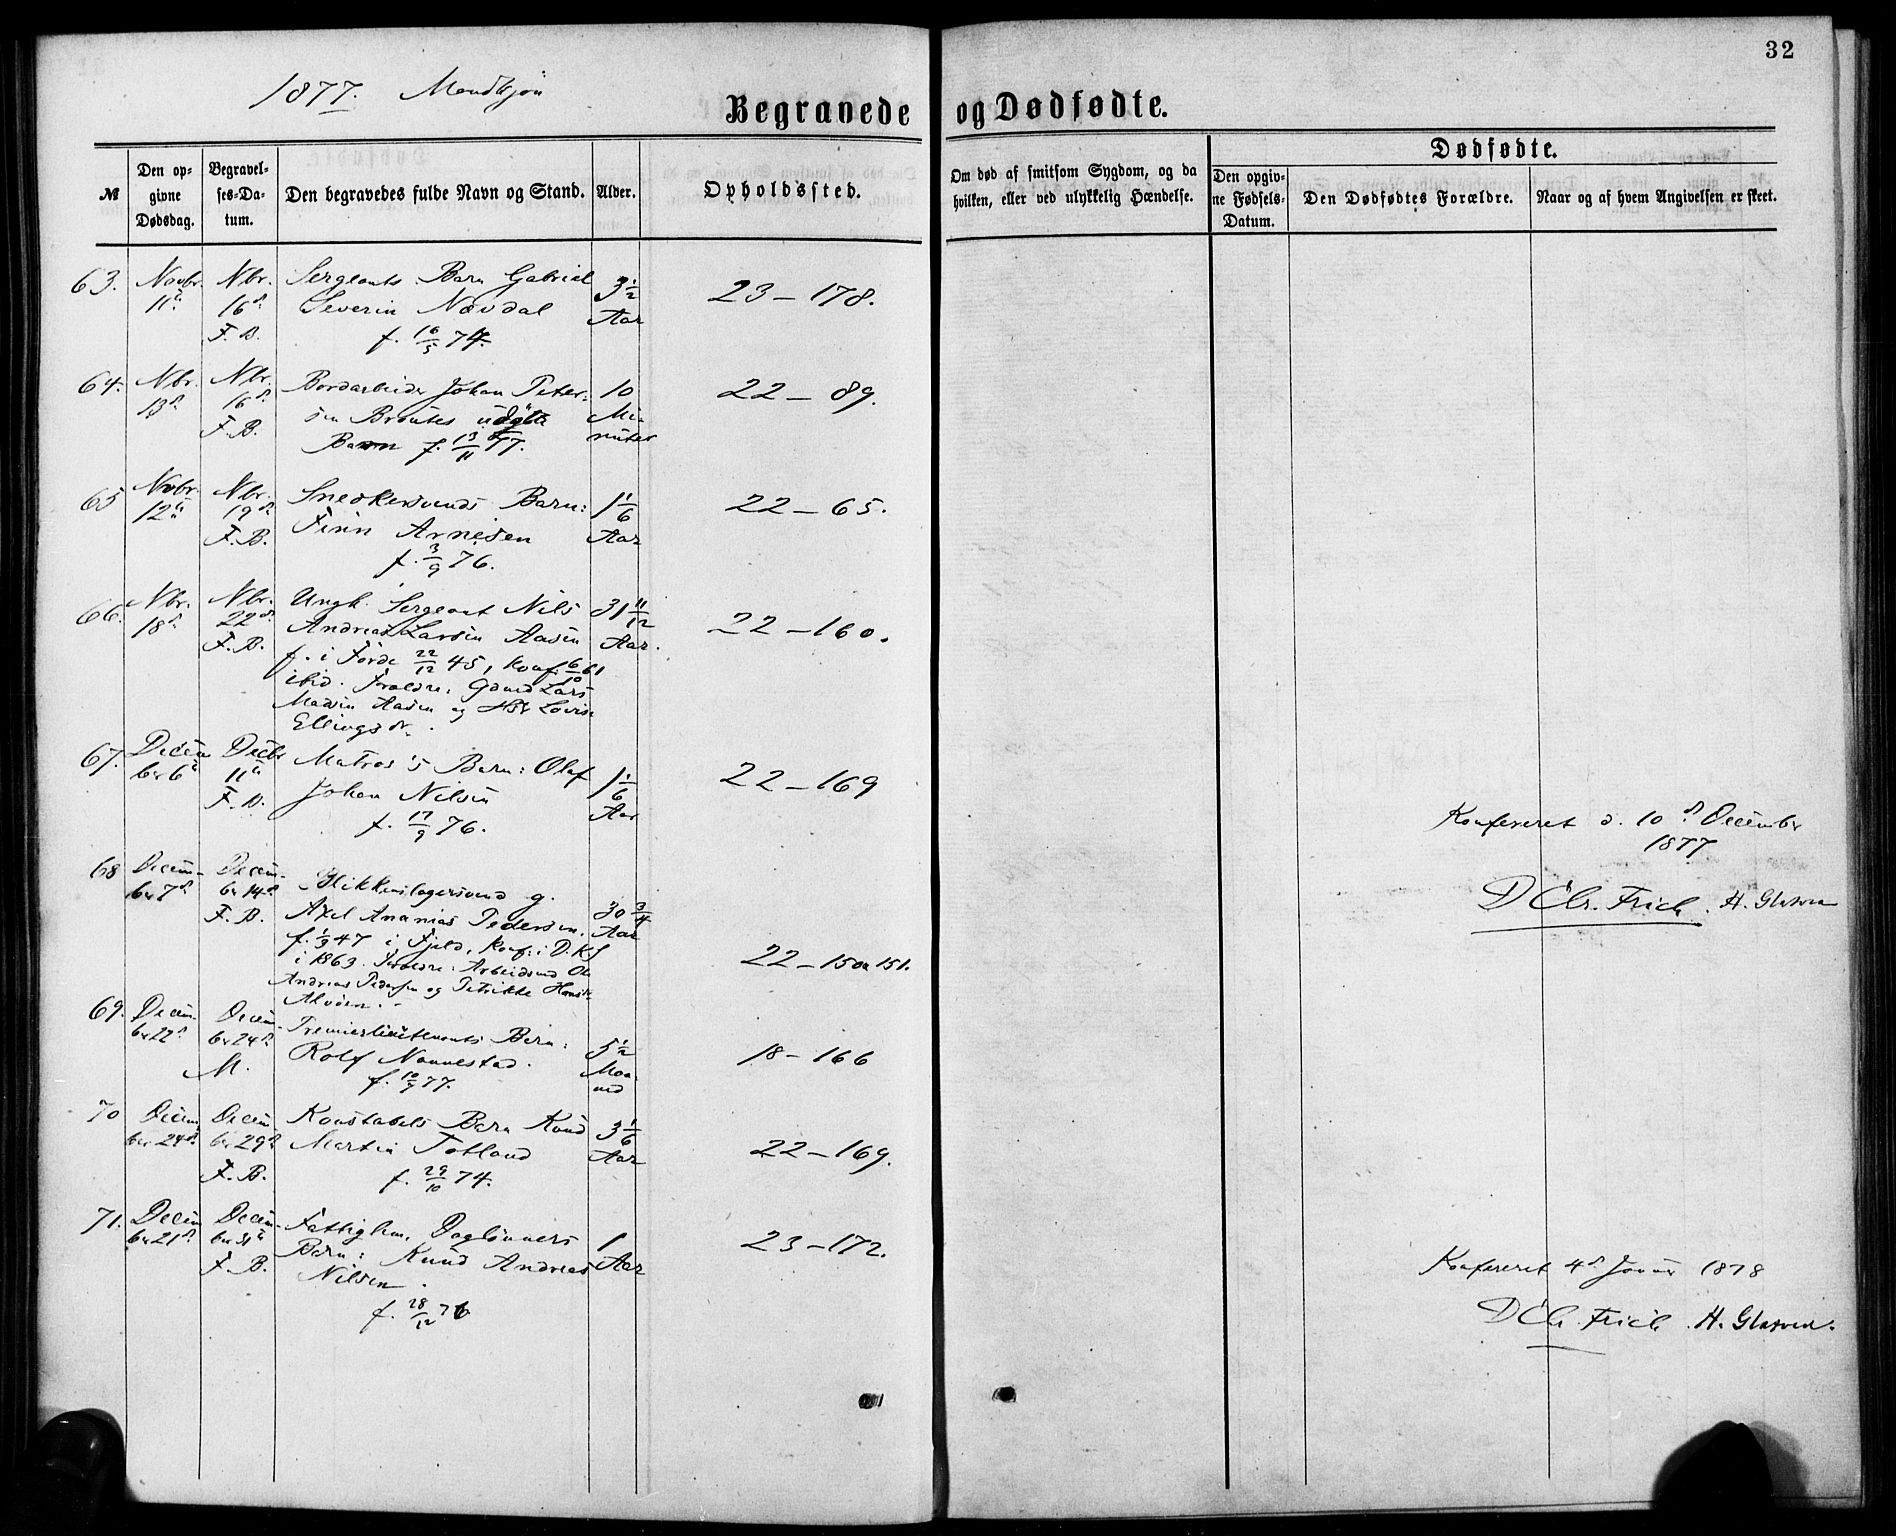 32
1877. Mandkjön
Begravede og Dødfødte.
№
Den opgivne Dødsdag.
Begravelses-Datum.
Den begravedes fulde Navn og Stand.
Alder.
Opholdssted.
Om død af smitsom Sygdom, og da hvilken, eller ved ulykkelig Hændelse.
Dødfødte.
Den opgivne Fødsels-Datum.
Den Dødfødtes Forældre.
Naar og af hvem Angivelsen er skeet.
63. Novbr. Nbr. Sergeants Barn Gabriel 3 1/2 23 – 178.
11te 16de Severin Nævdal Aar
F.B. f. 16/5 74.
64. Nbr. Nbr. Bordarbeider Johan Peter- 10 22 – 89.
13de 16de sen udøbte Mi-
F.B. Barn f. 13/11 77. nuter
65 Novbr. Nbr. Snedkersvends Barn: 1 1/6 22 – 65.
12te 19de Finn Arnesen Aar
F.B. f. 3/9 76.
66. Nbr. Nbr. Ungk. Sergeant Nils 31 11/12 22 – 160.
18de 22de Andreas Larsen Aasen Aar.
F.B. f. i Förde 22/12 45, konf. 6/10 61
ibid. Forældre: Gdmd Lars
Madsen Aasen og Lovise
Ellingsdr.
67. Decem- Decbr Matros's Barn: Olaf 1 1/6 22 – 169
ber 6te 11te Johan Nilsen Aar
F.B. f. 17/9 76.
68 Decem- Decem- Blikkenslagersvend g.
ber 7de ber 14de Axel Ananias Pedersen, 30 3/4
F.B. f. 1/3 47 i Fjeld, konf. i D.K. Aar
i 1863. Forældre: Arbeidsmd Ole 22 – 150a 151.
Andreas Pedersen og Petrikke
Alvöen.
69. Decem- Decem- Premierlieutenants Barn: 5 1/2 18 – 166
ber 22de ber 24de Rolf Nannestad. Maa-
M. f. 10/7 77. ned
70 Decem- Decem- Konstabels Barn Knud 3 1/6 22 – 169.
ber 24de ber 29de Martin Totland Aar
F.B. f. 29/10 74.
71. Decem- Decem- Fattiglem, Daglönners 1 23 – 172.
ber 21de ber 31te Barn: Knud Andreas Aar
F.B. Nilsen.
f. 28/12 76
Konfereret d. 10de December
1877
D Chr. Frich. H. Glatved
Konfereret 4de Januar 1878
D Chr. Frich. H. Glatved.